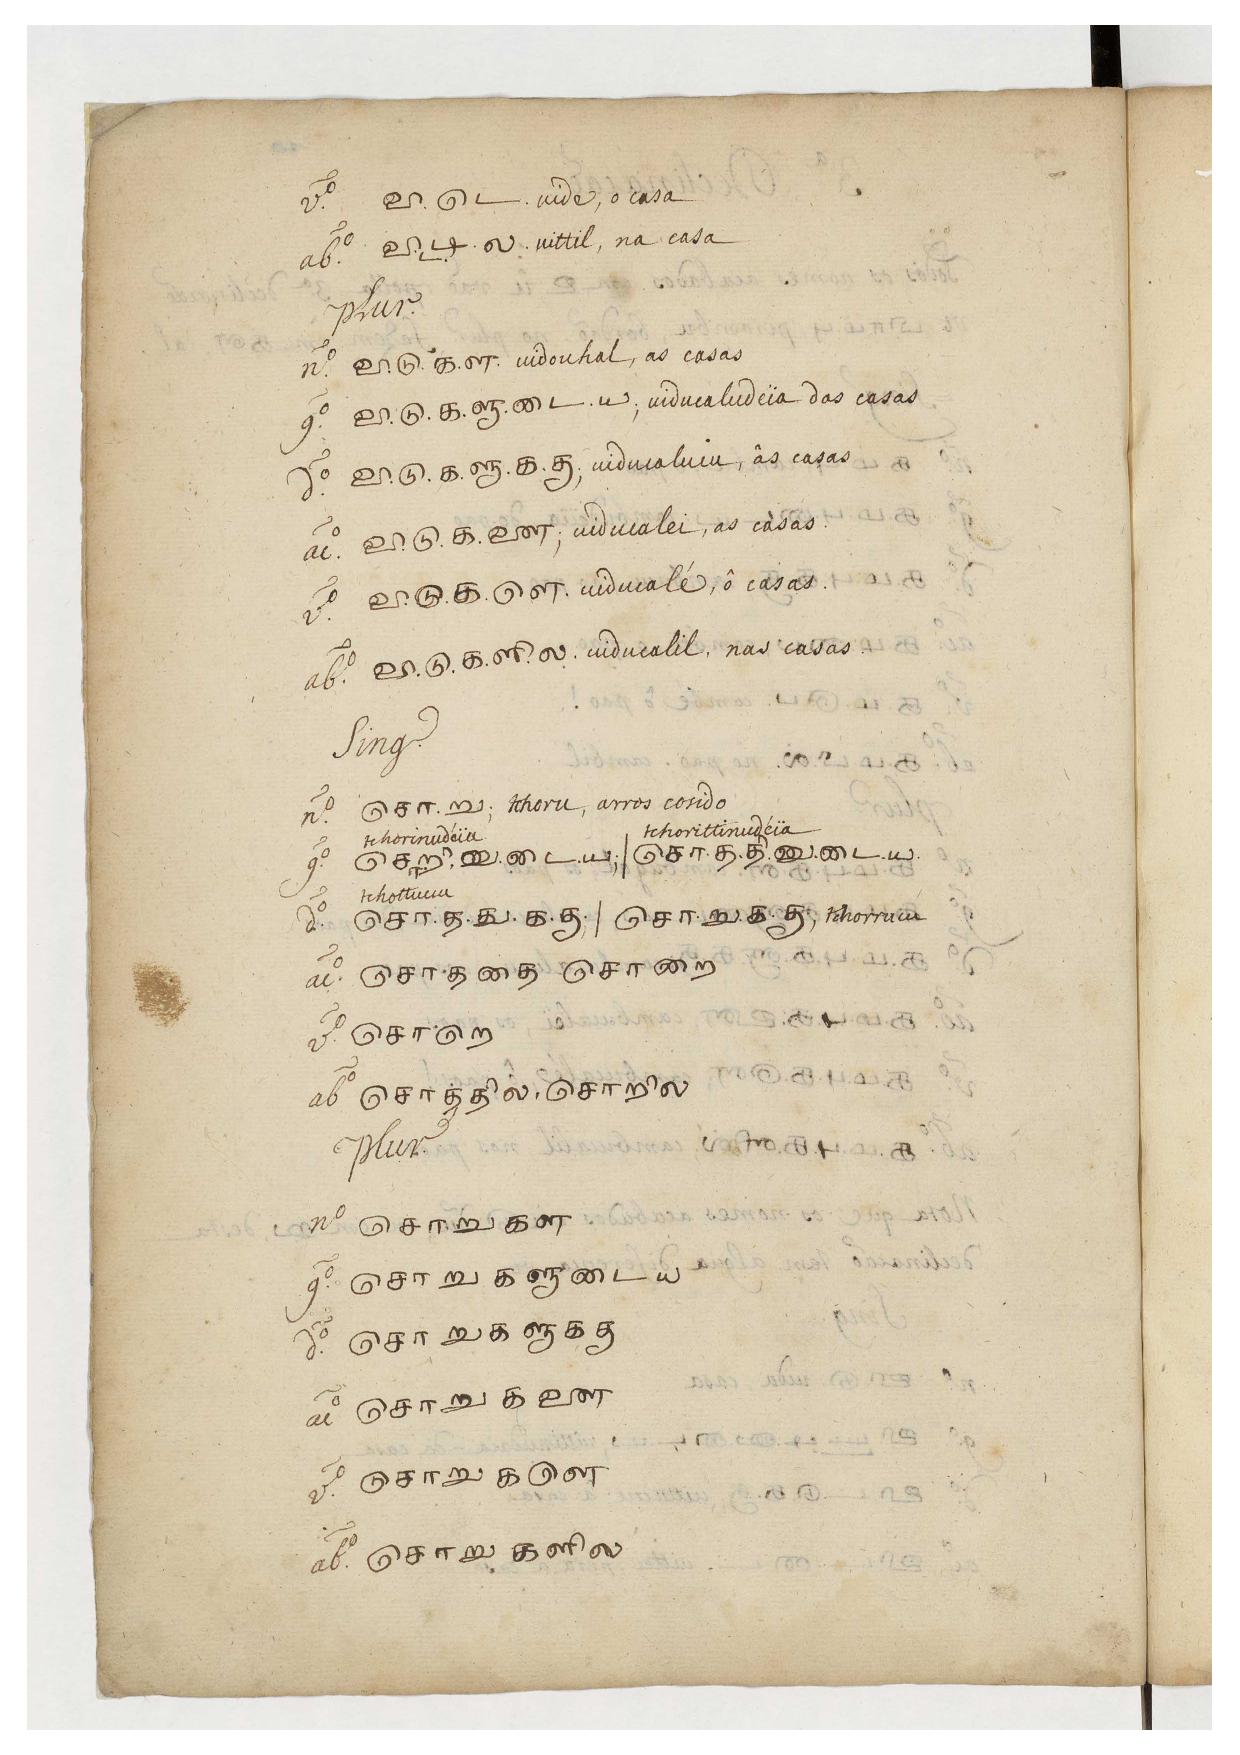 v.º வி.டெ. uide, o casa
ab.º வி.ட்டி.ல. uittil, na casa
plur.
n.º வி.டு.க.ள. uidouhal, as casas
g.º வி.டு.க.ளு.டை.ய; uiducaludeïa das casas
d.º வி.டு.க.ளு.க.கு; uiducalucu, âs casas
ac.º வி.டு.க.ளை; uiducalei, as casas.
v.º வி.டு.க.ளெ. uiducalé, ô casas.
ab.º வி.டு.க.ளி.ல. uiducalil, nas casas.
Sing.
n.º சொ.று; tchoru, arros cosido
tchorinudeïa tchorittinudeïa
g.º சொறி.னு.டை.ய; | சொ.த.தி.னு.டை.ய.
tchottucu
d.º சொ.த.து.க.கு; | சொ.று.க.கு, tchorrucu
ac.º சொ.ததை சொறை
v.º சொறெ
ab.º சொத்தில. சொறில
plur.
n.º சொறுகள
g.º சொறுகளுடைய
d.º சொறுகளுககு
ac.º சொறுகளை
v.º சொறுகளெ
ab.º சொறுகளில